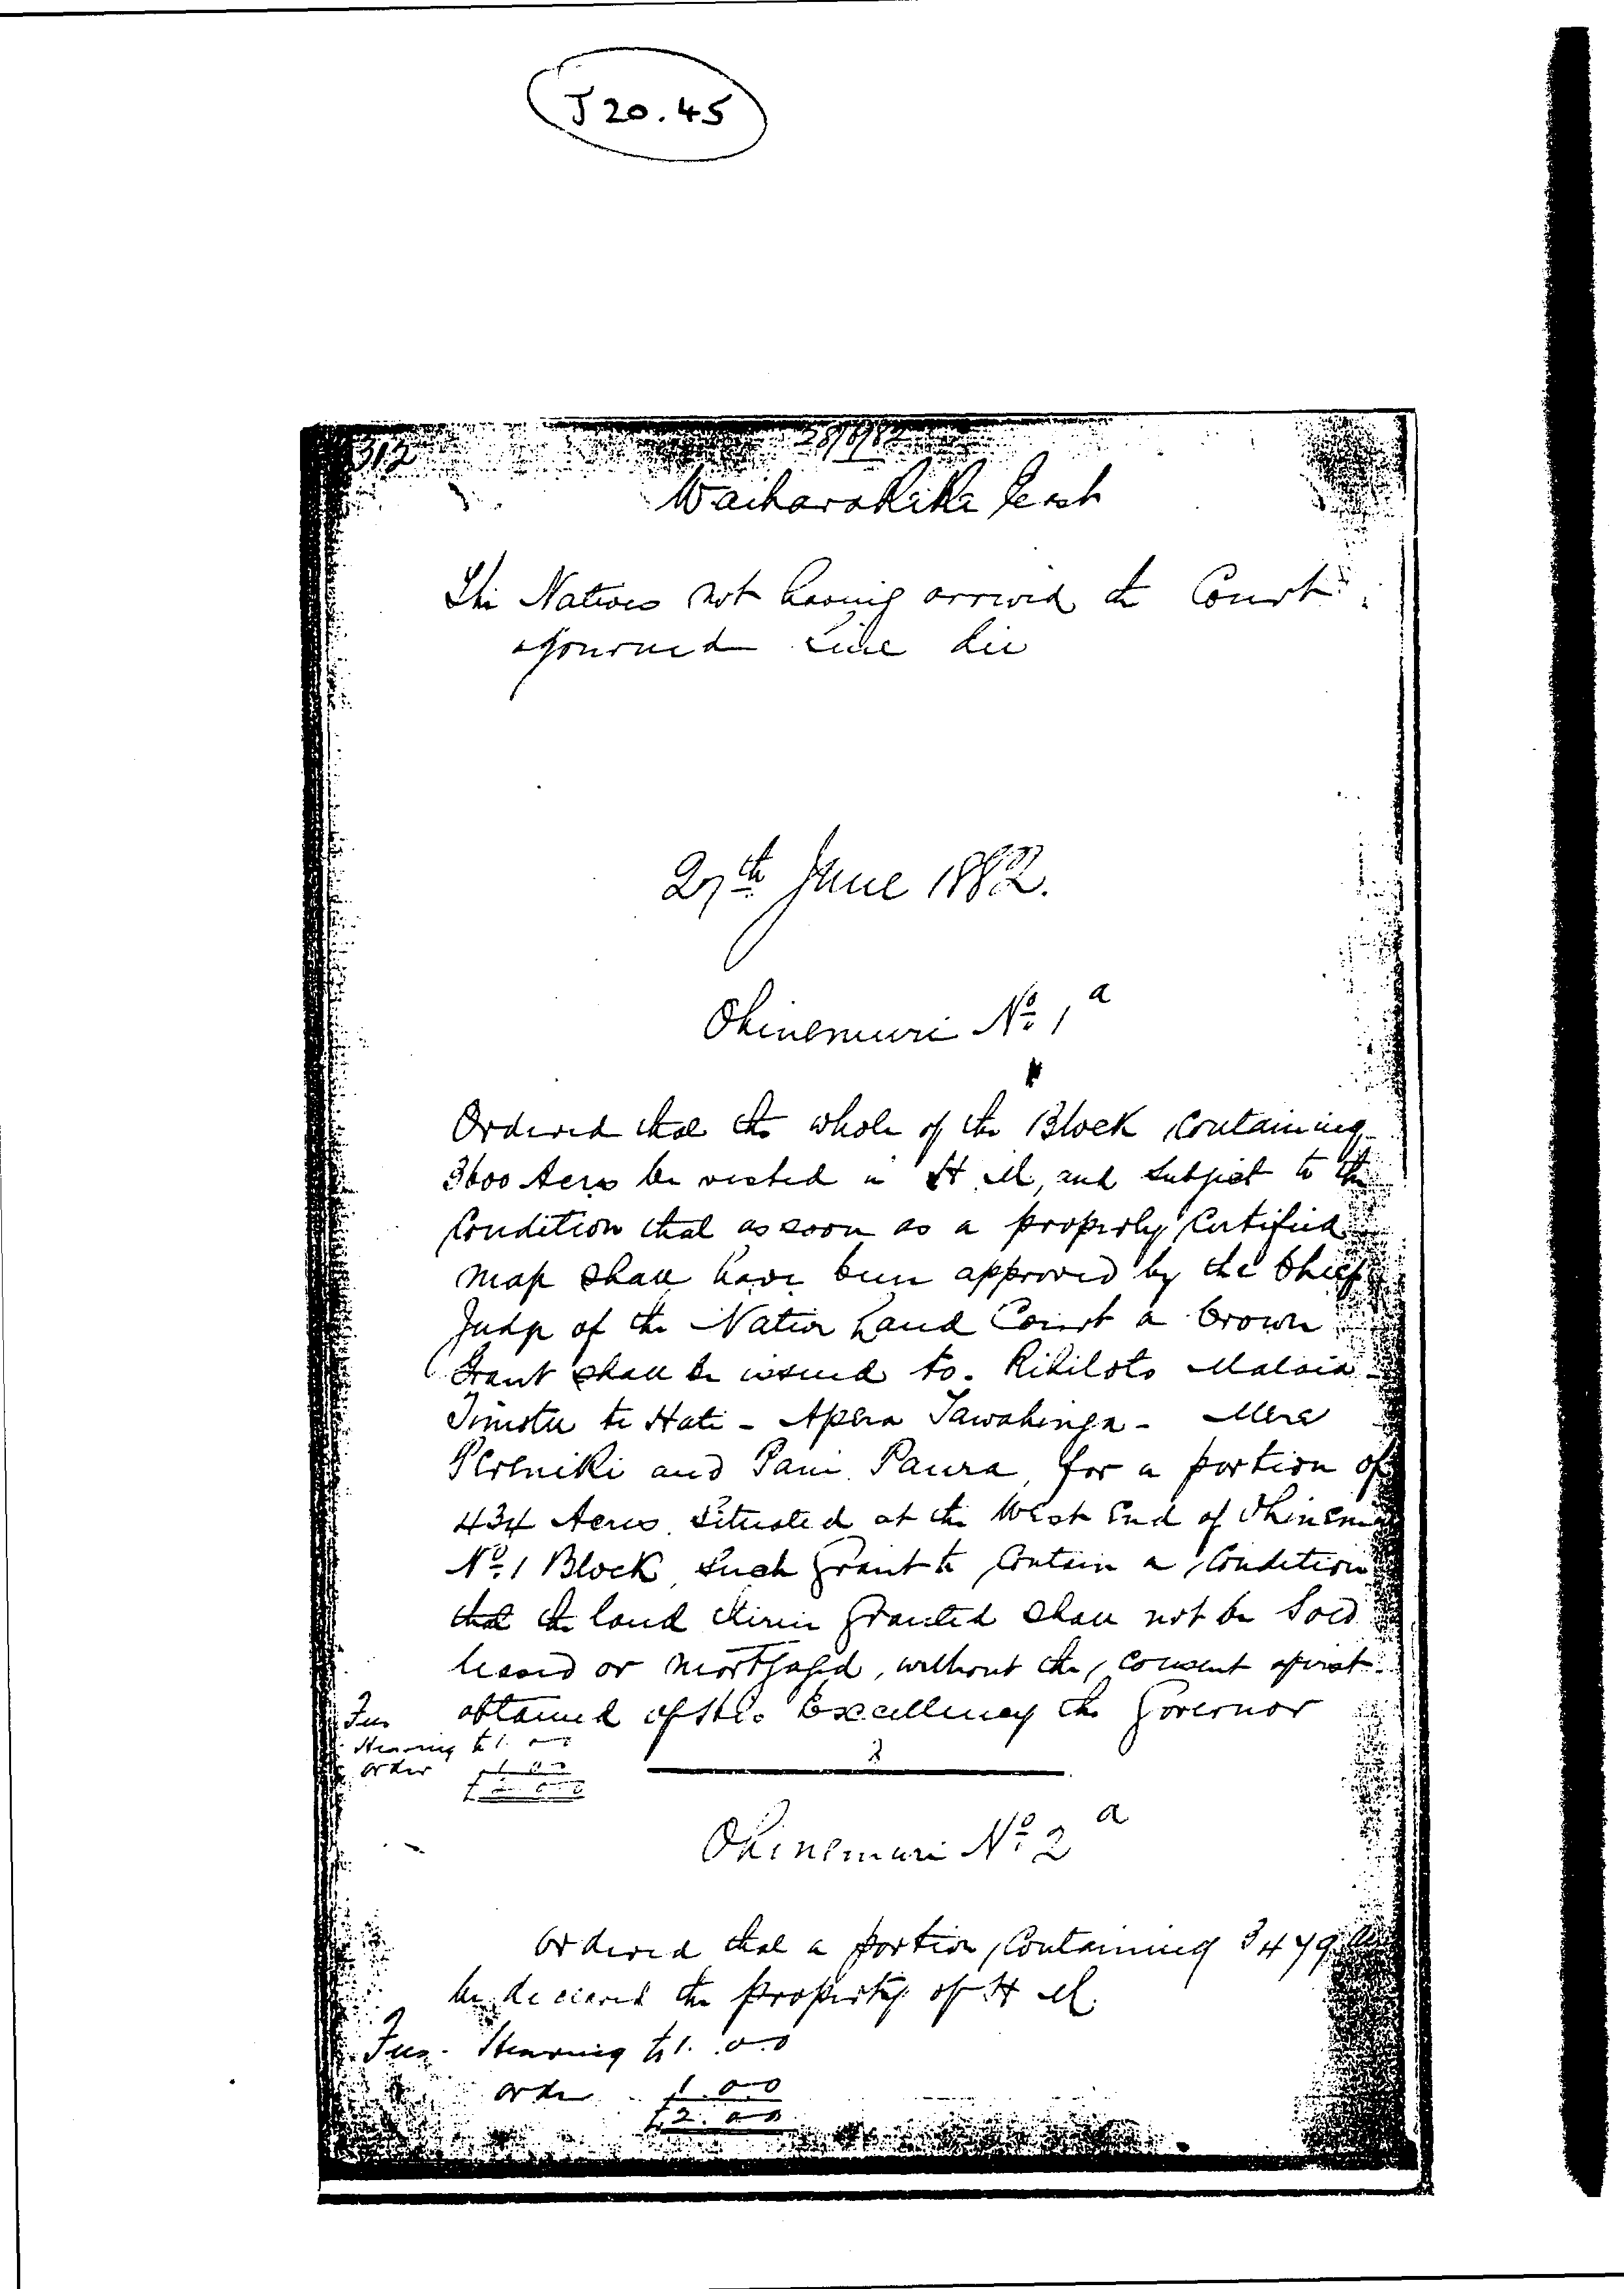 J 20.45
312
Waiharakeke East
The Natives not having arrived the Court
adjourned sine die
27th June 1882.
Ohinemuri No. 1 a
Ordered that the whole of the Block containing
3600 Acres be vested in H.M, and subject to the
Condition that as soon as a properly Certified
map shall have been approved by the Chief
Judge of the Native Land Court a Crown
Grant shall be issued to. Rihitoto Mataia
te Hati - Apera Tawahinga - Mere
Pereniki and Pani Paura, for a portion of
434 Acres. situated at the West End of
No. 1 Block, such Grant to contain a condition
that the land therin Granted shall not be Sold
leased or mortgaged, without the consent
obtained of His Excellency the Governor
Fees
Hearing £1. 0 0
Order 1 0 0
£2. 0 0
Ohinemuri No. 2 a
Ordered that a portion, containing 3479
be declared the property of H M.
Fees. Hearing £1. 0.0
Order 1.0.0
£2.0.0